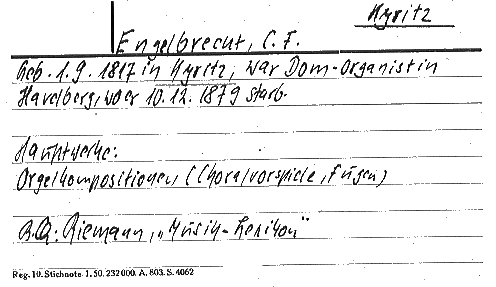 Kyritz
Engelbrecht, C. F.
Geb. 1.9.1817 in Kyritz, war Dom-Organist in
Havelberg, wo er 10.12.1879 starb.
Hauptwerke:
Orgelkompositionen (Choralvorspiele, Fugen)
B.Q.: Riemann, „Musik-Lexikon"
Reg. 10. Stichnote. 1. 50. 232000. A. 803. S. 4062